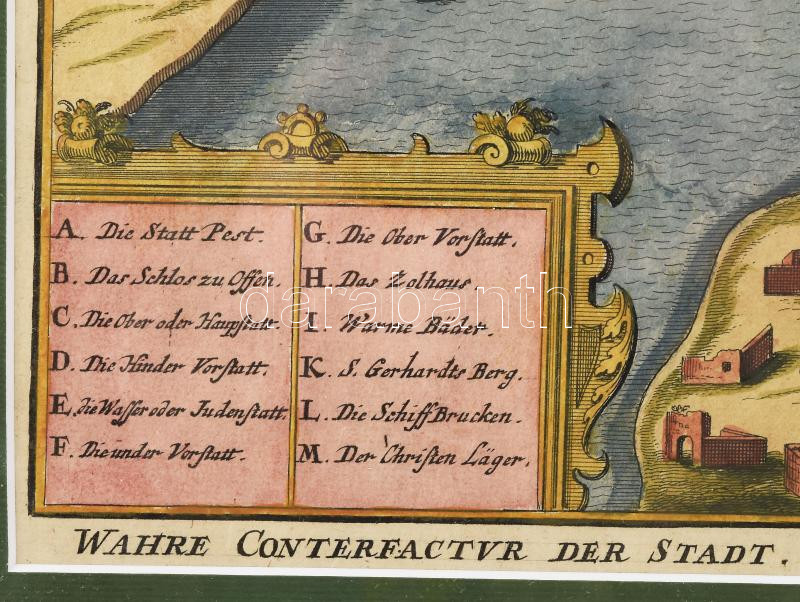 A. Die Statt Pest.
B. Das Schlos zu Offen.
C. Die Ober oder Haupstatt.
D. Die Hinder Vorstatt.
E. die Wasser oder Judenstatt.
F. Die under Vorstatt.
G. Die Ober Vorstatt.
H. Das Zolhaus
I. Warme Bäder.
K. S. Gerhardts Berg.
L. Die Schiff Brucken.
M. Der Christen Läger.
darabanth
WAHRE CONTERFACTVR DER STADT.